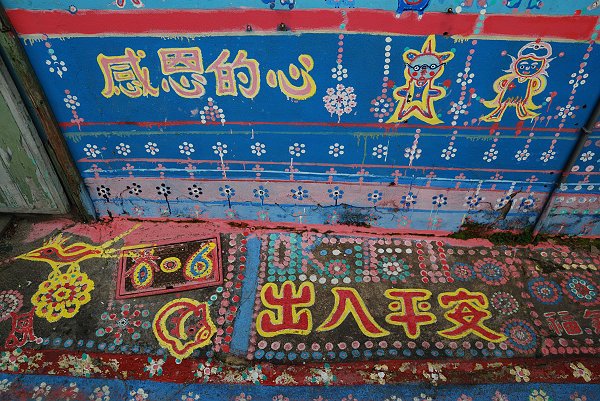 感恩的心
0-6
出入平安
福